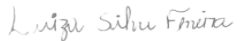 Luiza Silva Ferreira